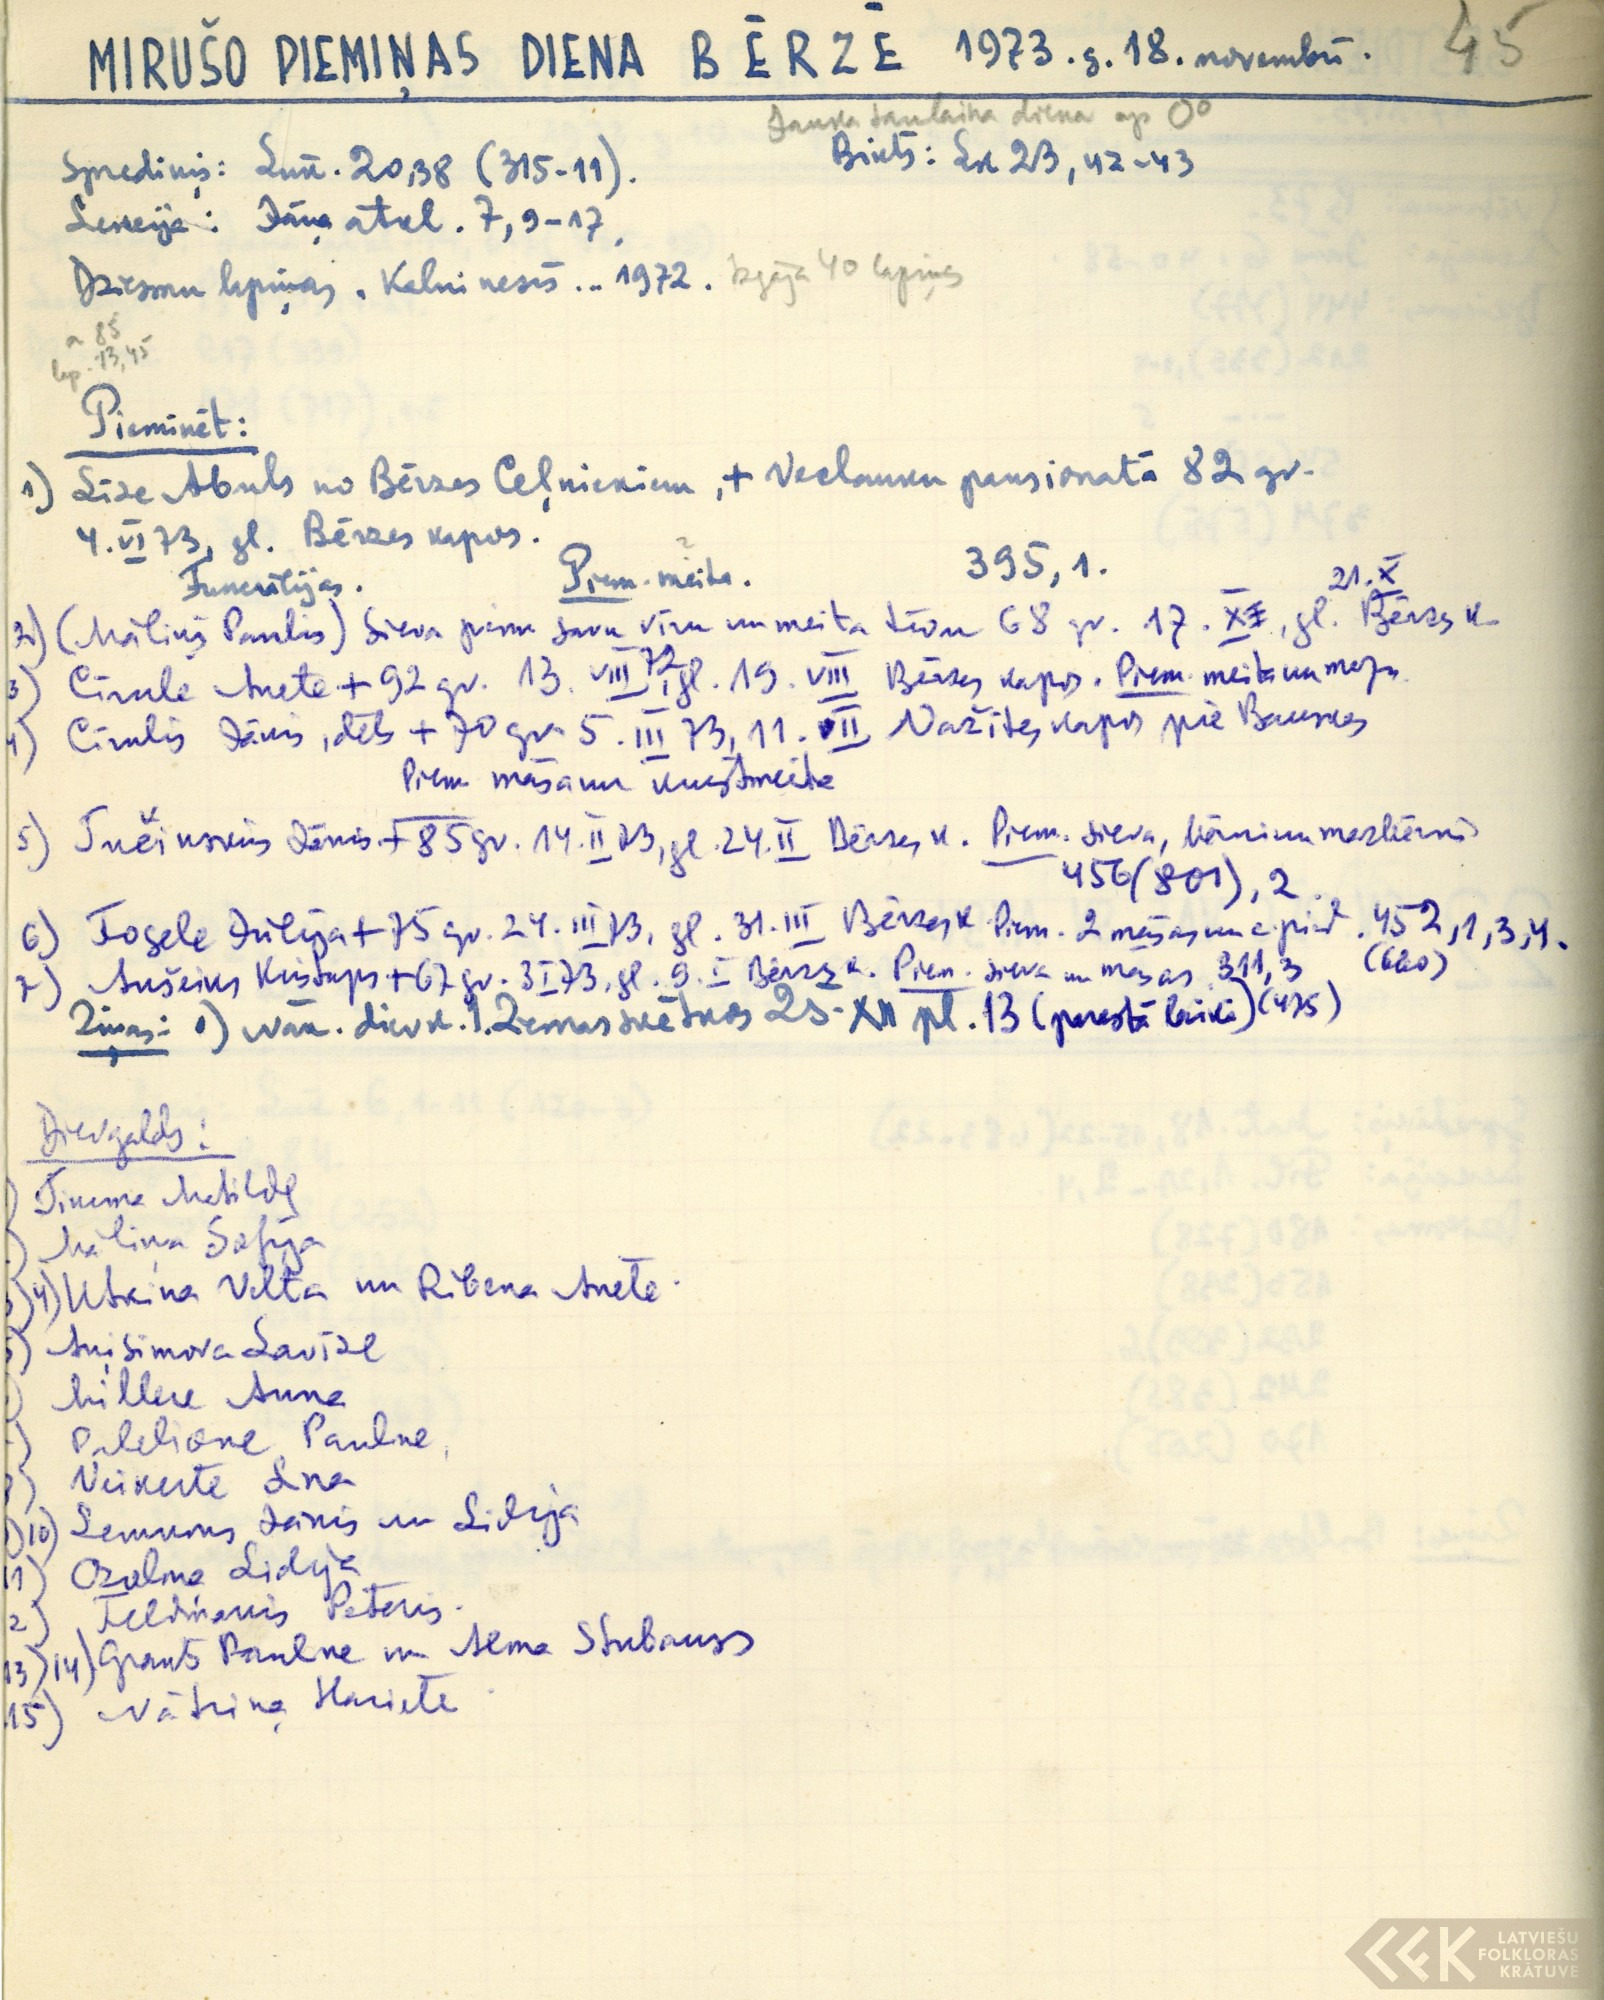 MIRUŠO PIEMIŅAS DIENA BĒRZĒ 1973.g.18.novembrī. 45
Jauka saulaina diena ap 0°
Sprediķis: Lūk. 20,38 (315-11). Bikts: Lk 23, 42-43
Lekcija: Jāņa atkl. 7, 9-17,
Dziesmu lapiņas. Kalni nesīs... 1972. Izgāja 40 lapiņas
a 85
lap. 13,45
Pieminēt:
1) Līze Abuls no Bērzes Ceļniekiem, + Veclauku pansionatā 82 gr.
4.VI 73, gl. Bērzes kapos.
Funerālijas. Piem. meita. 395, 1.
21.X
2) (Māliņš Paulis) Sieva piem savu vīru un meita tēvu 68 gr. 17. gl. Bērzes k.
3) Cīrule Anete + 92 gr. 13. VIII 72, gl. 19. VIII Bērzes kapos. Piem. meita un
4) Cīrulis Jānis, dēls + 70 gr. 5. III 73, 11. Važītes kapos pie Bauskas
Piem māsa un krustmeita
5) Jānis + 85 gr. 14. II 73, gl. 24. II Bērzes k. Piem. sieva, bērni un mazbērni
456 (801), 2
6) Fogele Jūlija + 75 gr. 24. III 73, gl. 31. III Bērzes k. Piem. 2 māsas un 452, 1, 3, 4.
7) Aušeiks Kristaps + 67 gr. 3 I 73, gl. 9. I Bērzes k. Piem. sieva un māsas 311, 3 (660)
Ziņas: 1) nāk. dievk. 1. Ziemassvētkos 25. XII pl. 13 (parastā laikā) (475)
Dievgalds:
Matilde
Māliņa Sofija
3) 4) Utkina Velta un Ribena Anete.
5) Aņisimova Lavīze
Millere Anna
Pauline,
Veikerte Lina
9) 10) Lemkens Jānis un Lidija
11) Ozoliņa Lidija
12) Feldmanis Pēteris.
13) 14) Grants Pauline un Alma
15) Nātriņa Hariete
LATVIEŠU
FOLKLORAS
KRĀTUVE